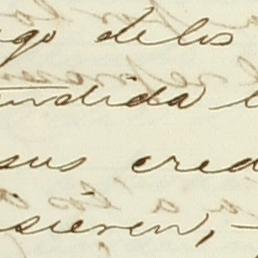 go delos
endida l
sus cred
sieren,